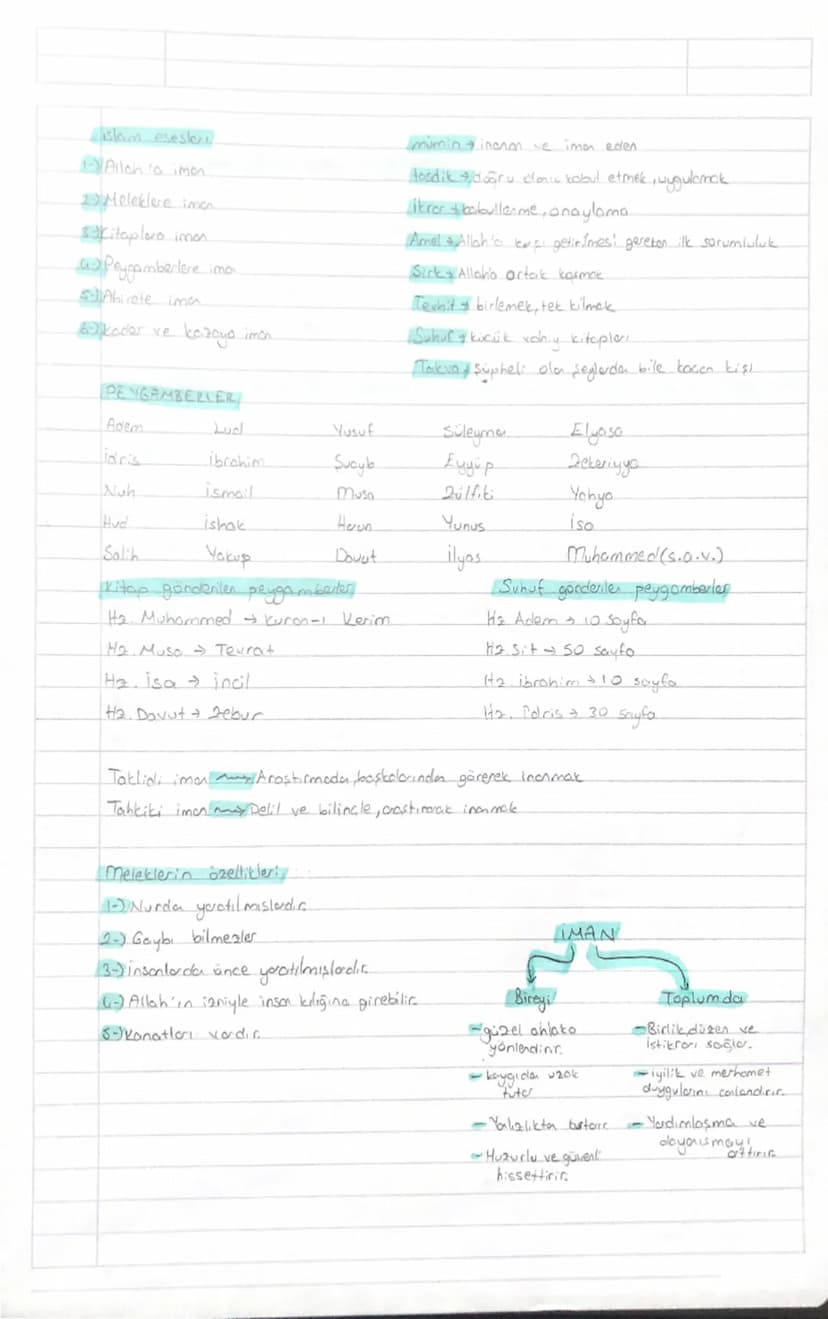 islam esesları
1-) Allah'a iman
2-) Meleklere iman
3-) Kitaplara iman
4-) Peygamberlere iman
5-) Ahirete iman
6-) kader ve kazaya iman
mümin → inanan ve iman eden
tasdik → doğru olanı kabul etmek, uygulamak
ikrar → kabullenme, onaylama
Amel → Allah'a karşı getirilmesi gereken ilk sorumluluk
Şirk → Allaha ortak koşmak
Tevhit → birlemek, tek kılmak
Suhuf → küçük vahiy kitapları
Takva → Şüpheli olan şeylerden bile kaçan kişi
PEYGAMBERLER
Adem Lud Yusuf Süleyman Elyasa
İdris ibrahim Şuayb Eyyüp Zekeriyya
Nuh ismail Musa Zülfikl Yahya
Hud ishak Harun Yunus isa
Salih Yakup Davut ilyas Muhammed (s.a.v.)
Kitap gönderilen peygamberler
Hz. Muhammed → Kuran-ı Kerim
Hz. Musa → Tevrat
Hz. İsa → incil
Hz. Davut → Zebur
Suhuf gönderilen peygamberler
Hz Adem → 10 Sayfa
Hz. Şit → 50 sayfa
Hz ibrahim → 10 sayfa
Hz. İdris → 30 sayfa
Taklidi iman → Araştırmadan, başkalarından görerek inanmak
Tahkiki iman → Delil ve bilinçle, araştırarak inanmak
Meleklerin özellikleri
1-) Nurdan yaratılmışlardır.
2-) Gaybı bilmezler
3-) insanlardan önce yaratılmışlardır.
4-) Allah'ın izniyle insan kılığına girebilir.
5-) Kanatları vardır.
İMAN
Bireyi
- güzel ahlaka
yönlendirir.
- kaygıdan uzak
tutar
- Yalnızlıktan kurtarır
- Huzurlu ve güvenli
hissettirir.
Toplumda
- Birlik, düzen ve
istikrarı sağlar.
- iyilik ve merhamet
duygularını canlandırır.
- Yardımlaşma ve
dayanışmayı
arttırır.